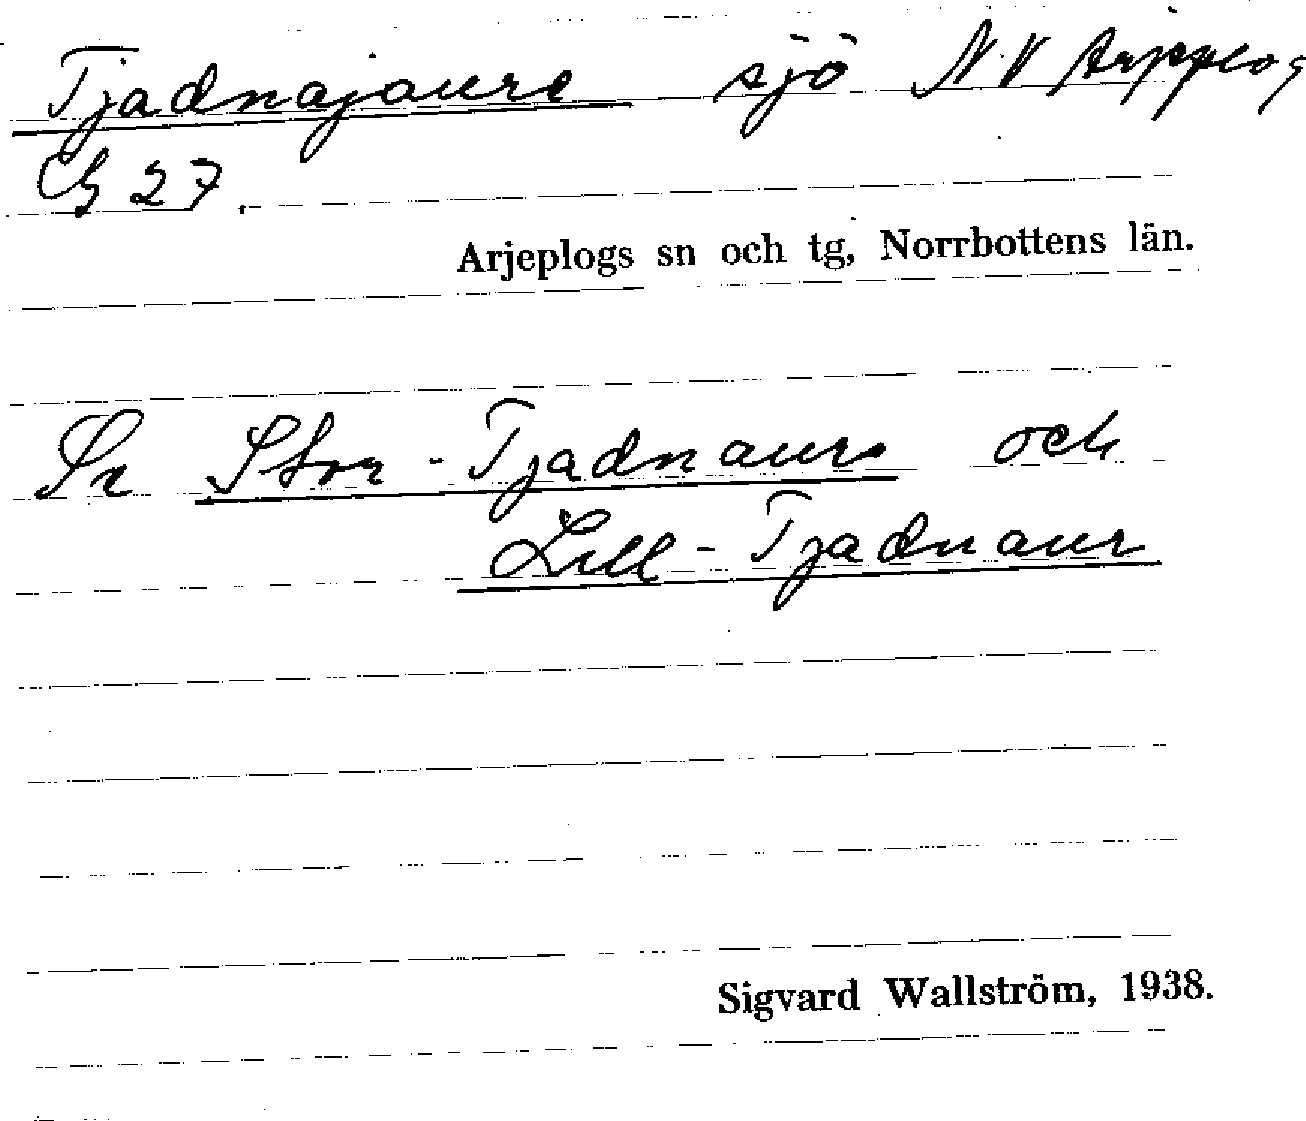 Tjadnajaure sjö NV Arjeplog
G 27.
Arjeplogs sn och tg, Norrbottens län.
Se Stor-Tjadnaure och
Lill-Tjadnaur
Sigvard Wallström, 1938.